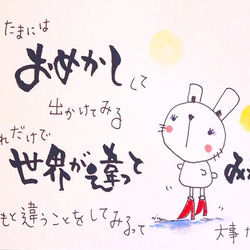 たまには
おめかしして
出かけてみる
れだけで
世界が違って
み
もと違うことをしてみるって
大事